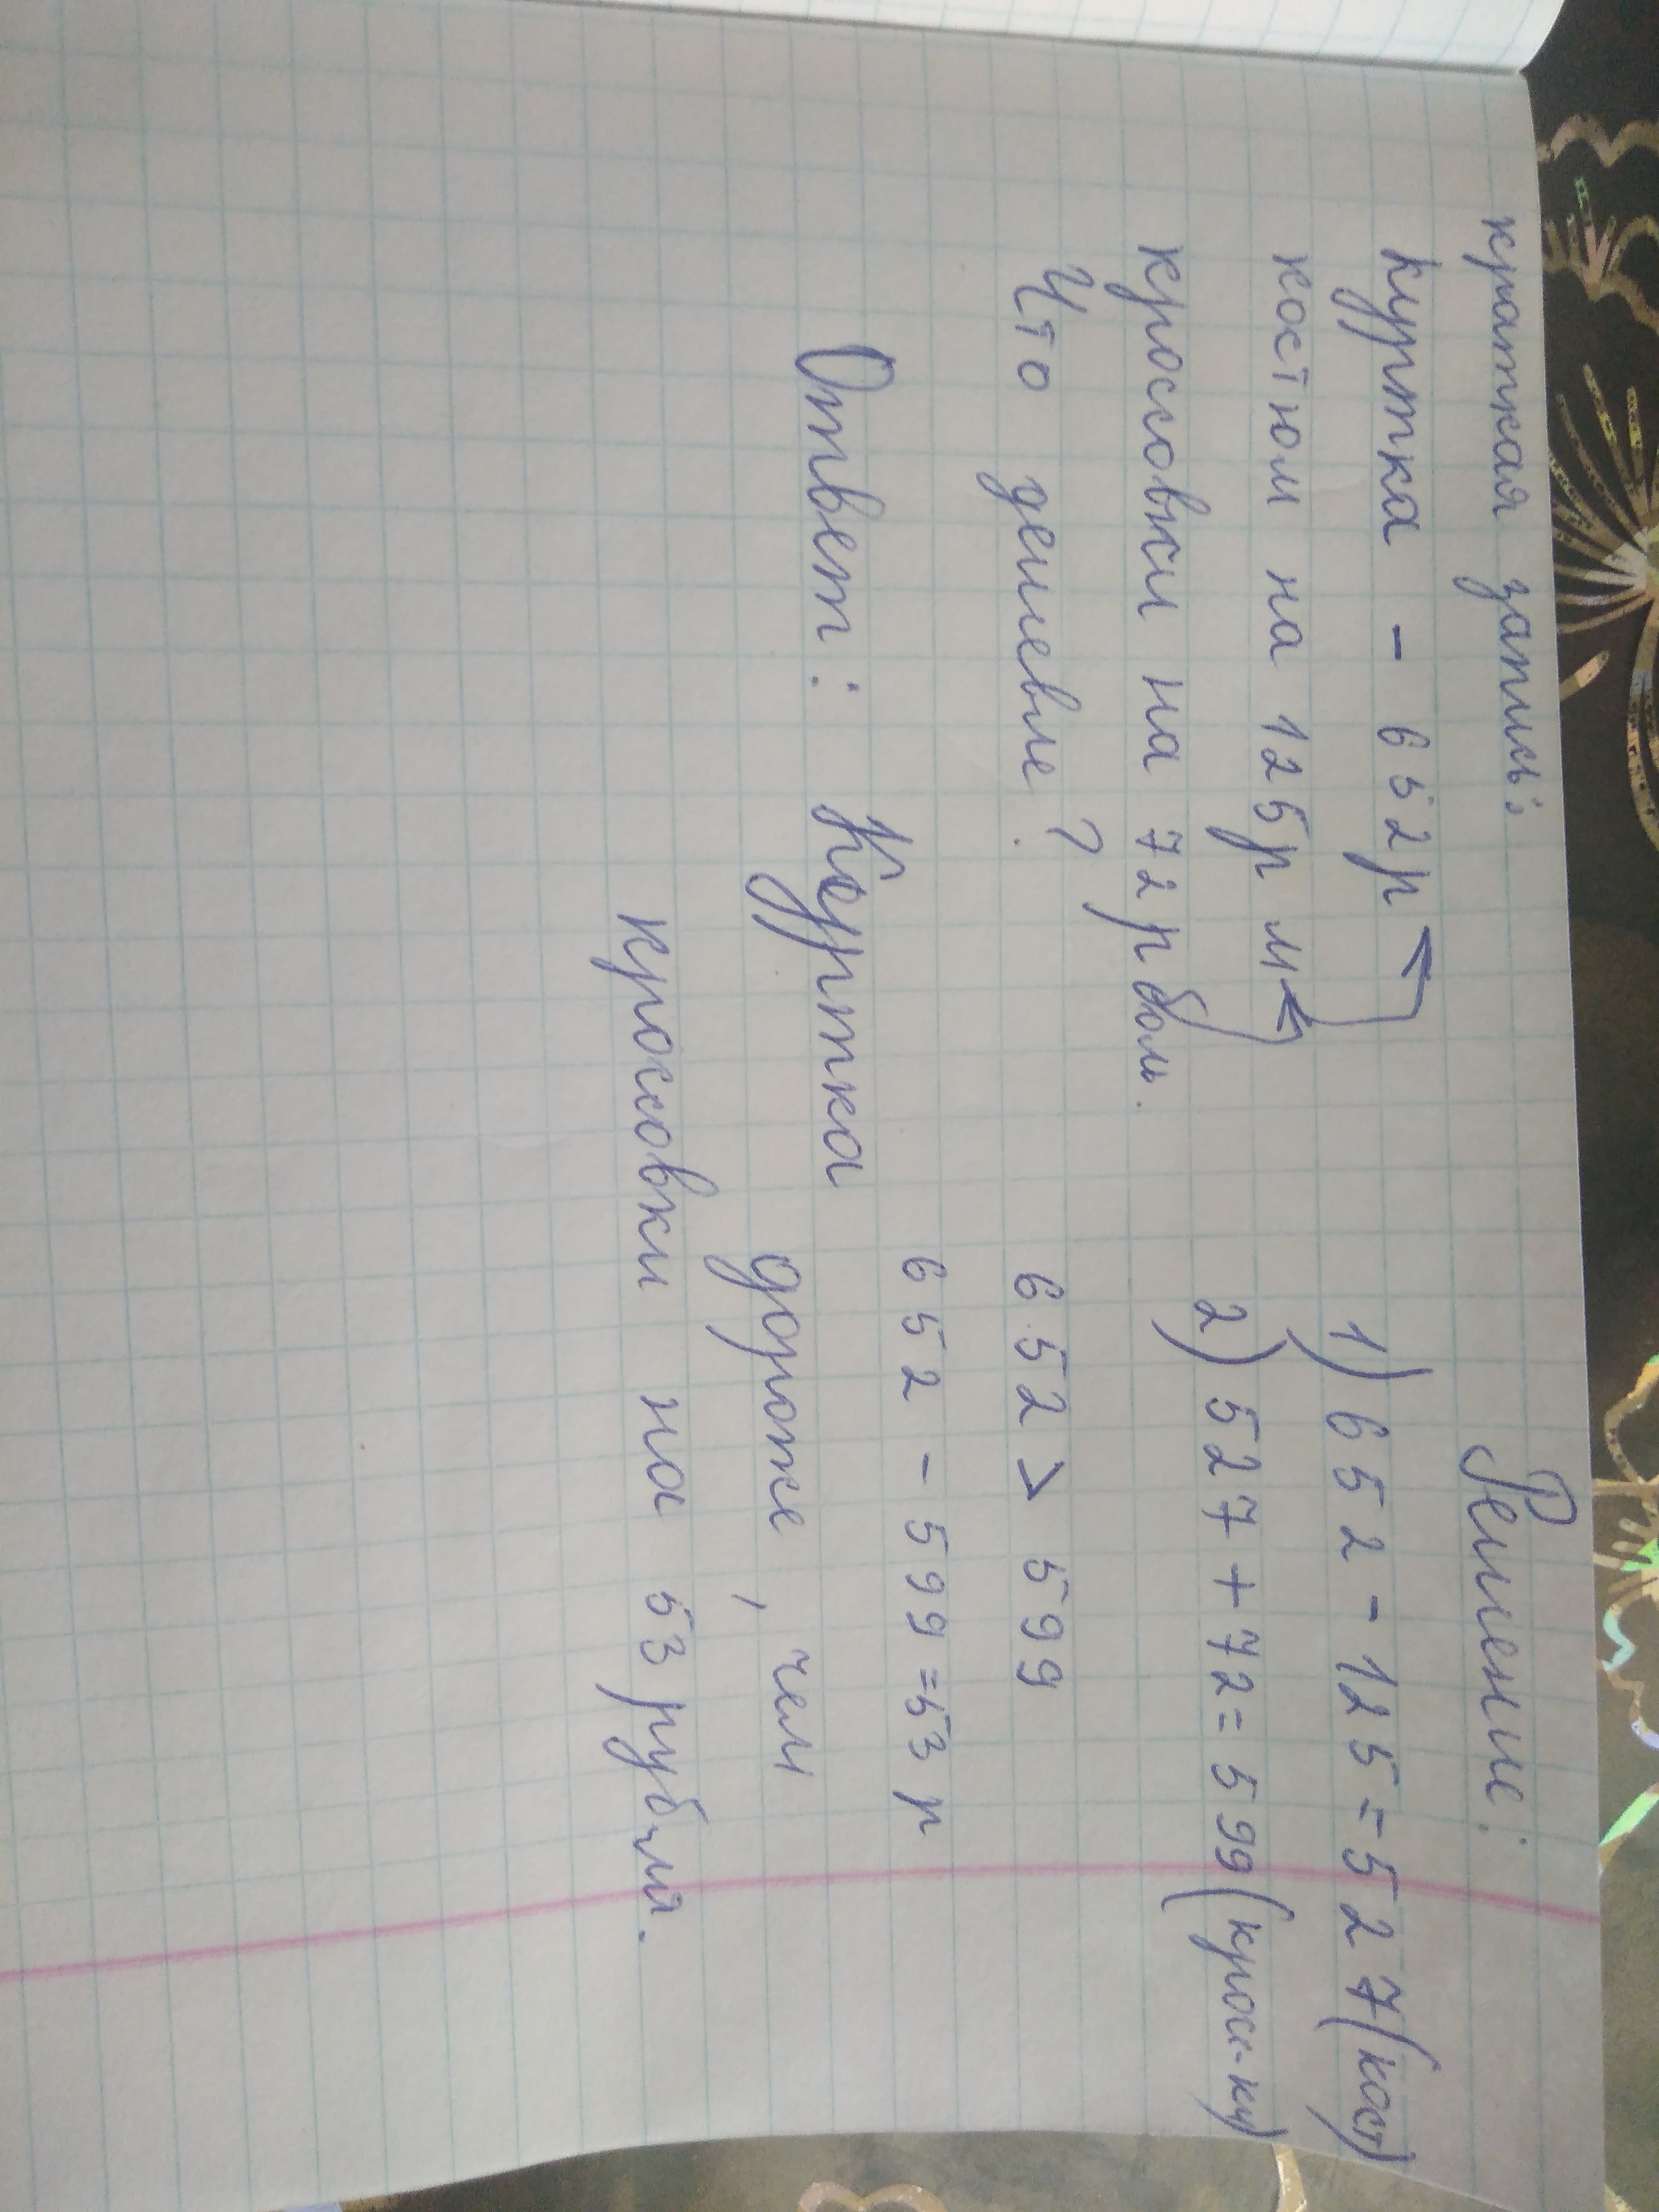 краткая запись:
Куртка - 652р
костюм на 125р м
кросовки на 72р боль.
Что дешевле?
Решение:
1) 652-125=527(кост)
2) 527+72=599(кросс-ки)
652 > 599
652 - 599 = 53 р
Ответ: Куртка
дороже, чем
кроссовки на 53 рубля.